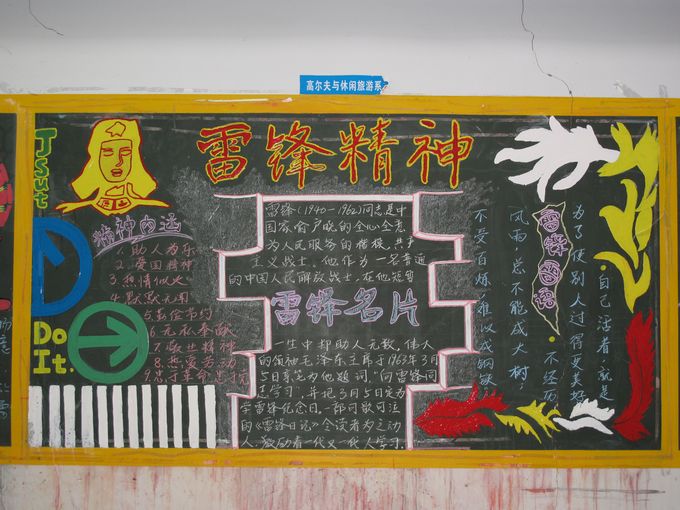 高尔夫与休闲旅游系
雷锋精神
Jsut
Do
It.
精神内涵
1.助人为乐
2.爱国精神
3.热情似火
4.默默无闻
5.艰俭节约
6.无私奉献
7.敬业精神
8.热爱劳动
9.忠于革命忠于党
雷锋(1940-1962)同志是中
国家喻户晓的全心全意
为人民服务的楷模,共产
主义战士。他作为一名普通
的中国人民解放战士,在他短暂
雷锋名片
一生中却助人无数,伟大
的领袖毛泽东主席于1963年3月
5日亲笔为他题词“向雷锋同
志学习”,并把3月5日定为
学雷锋纪念日。一部可歌可泣
的《雷锋日记》令读者为之动
人,激励着一代又一代人学习。
雷锋日记
为了使别人过得更美好
·自己活着,就是
·不经历
风雨,总不能成大树;
不受百炼,难以成钢铁